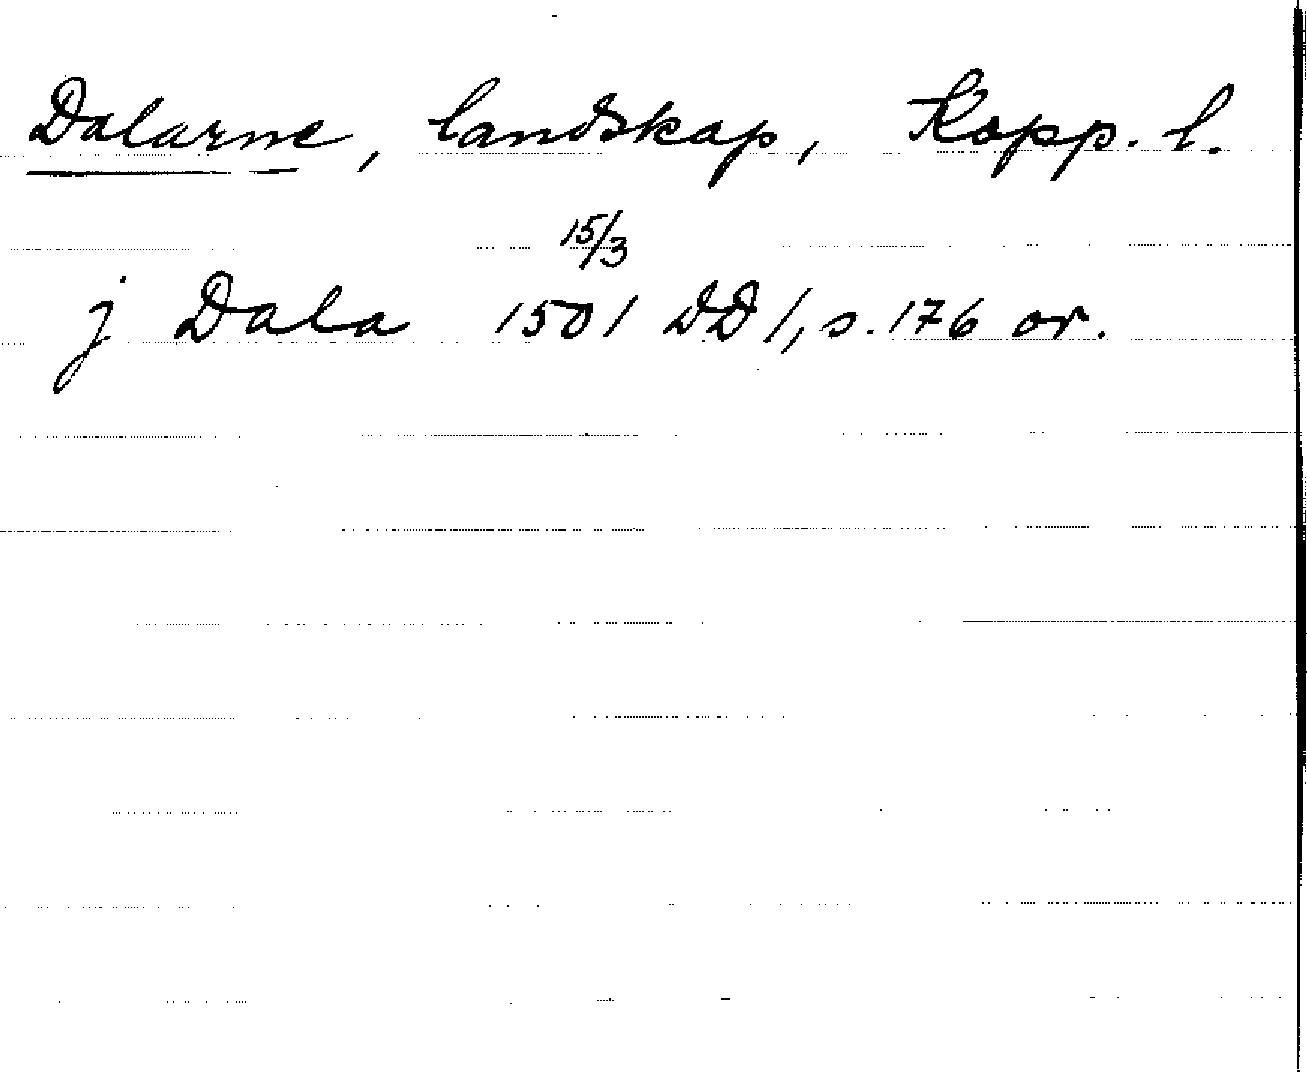 Dalarne, landskap, Kopp. l.
15/3
j Dala 1501 DD 1, s. 176 or.